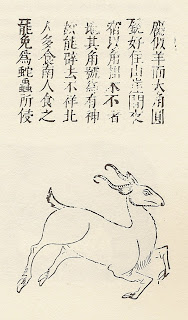 似羊而大角圓
銳好住山崖間夜
宿以角掛木不著
地其角有神
故能辟去不祥北
人多食南人食之
免為蛇蟲所侵